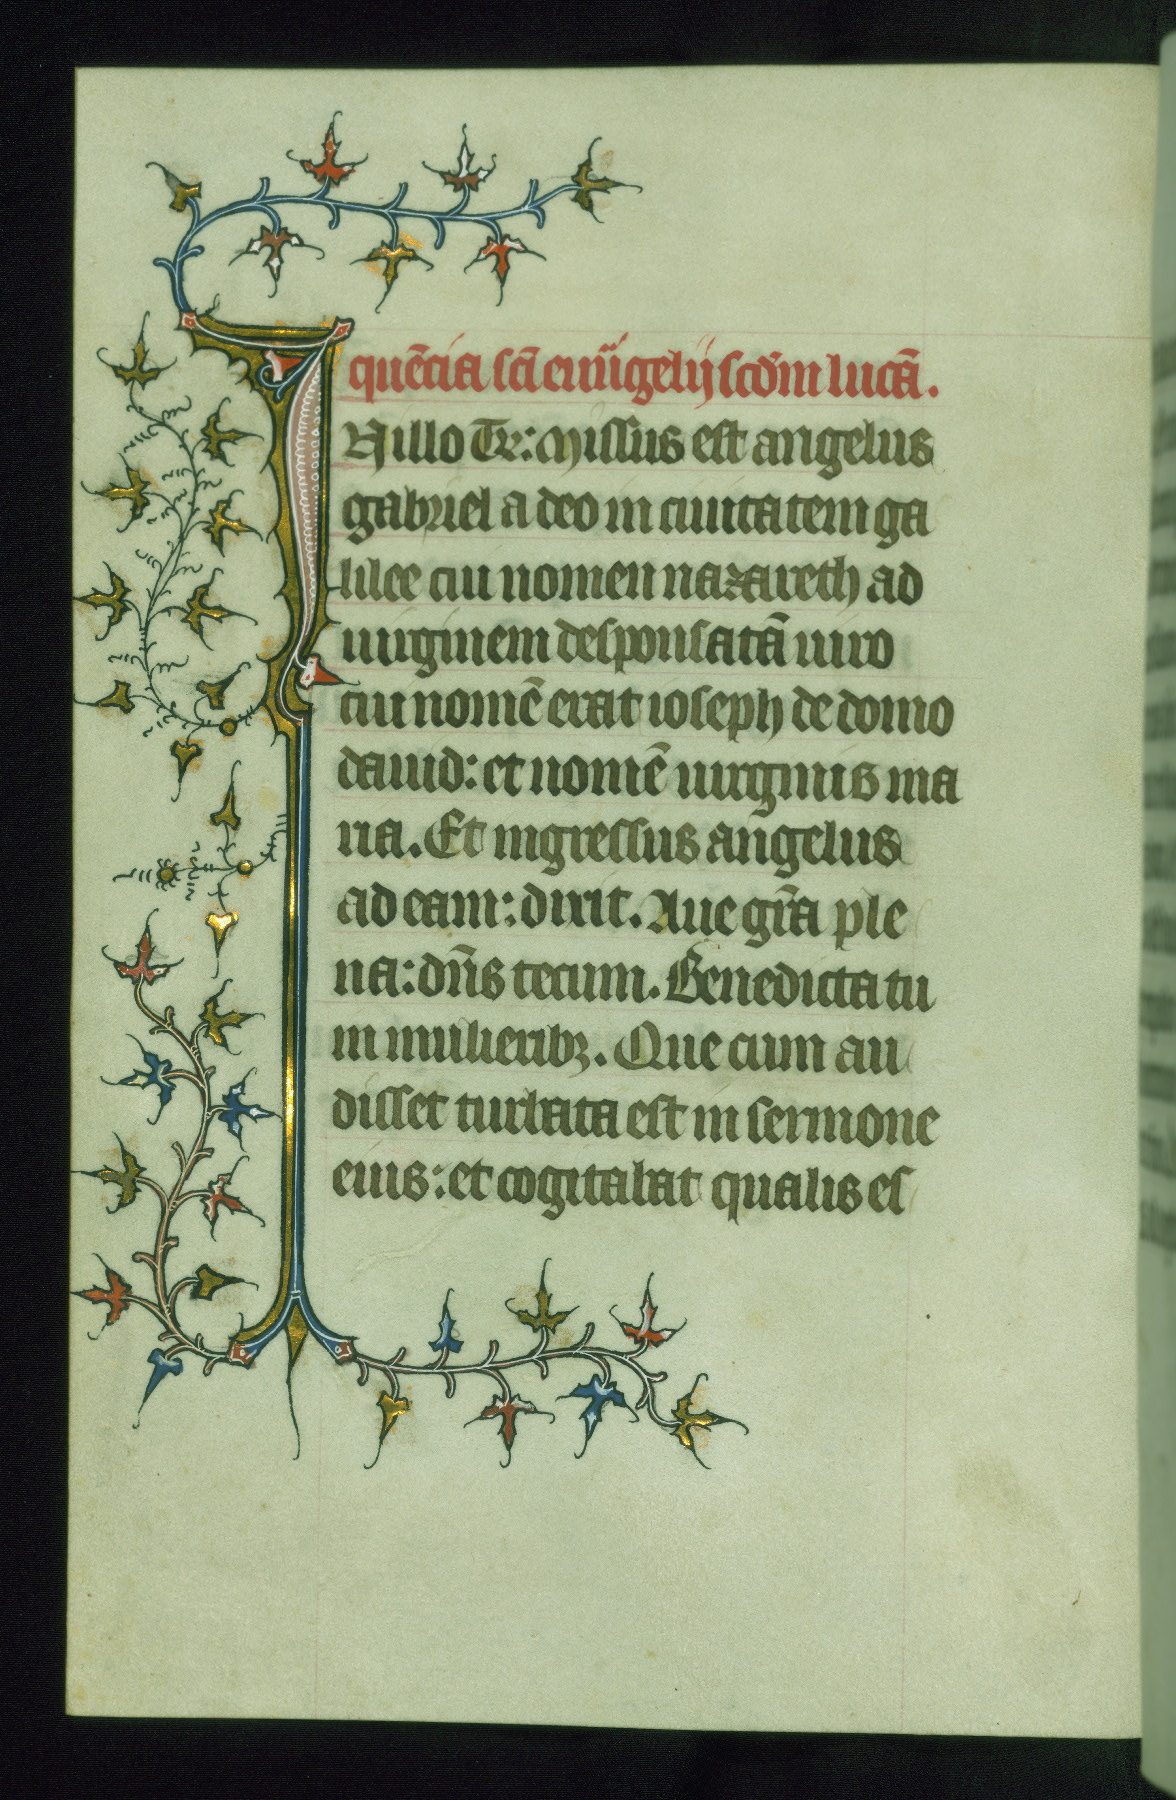 quēcia scī euuāgelij scdm̄ lucā.
IN illo Tꝑꝛ: missus est angelus
gabriel a deo in ciuitatem ga
lilee cui nomen nazareth ad
uirginem desponsatā uiro
cui nomē erat ioseph de domo
dauid: et nomē uirginis ma
ria. Et ingressus angelus
ad eam: dixit. Aue grā ple
na: dn̄s tecum. Benedicta tu
in mulieribꝫ. Que cum au
disset turbata est in sermone
eius: et cogitabat qualis es